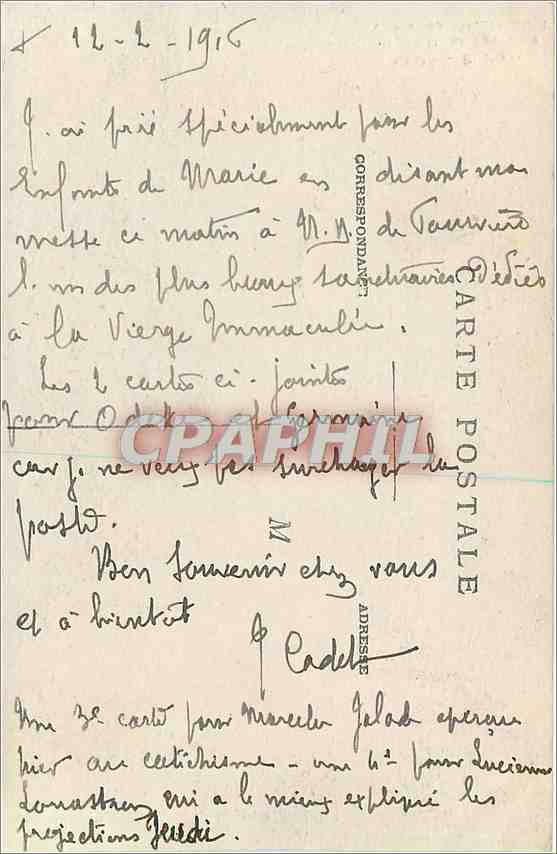 + 12-2-1916
J. ai prié spécialement pour les
Enfants de Marie en disant ma
messe ce matin à N.D. de Fourvière
l. un des plus beaux sanctuaires dédiés
à la Vierge Immaculée.
Les 2 cartes ci-jointes
pour Odette et Germaine
car je ne veux pas surcharger la
poste.
Bon souvenir chez vous
et à bientôt
J Cadel
Une 3e carte pour Marcelle aperçue
hier au catéchisme - une 4e pour Lucienne
qui a le mieux expliqué les
projections Jeudi.
CORRESPONDANCE
CARTE POSTALE
M
ADRESSE
CPAPHIL